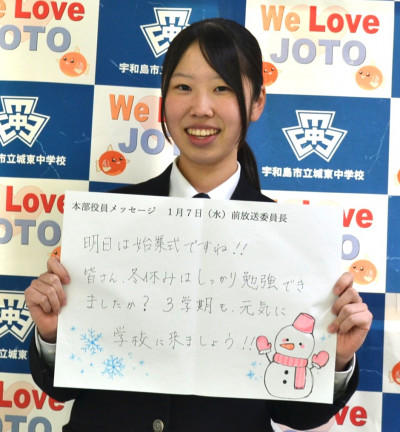 We Love
JOTO
宇和島市立城東中学校
We Love
JOTO
宇和島市立城東中学校
We Love
JOTO
市立城東中学校
本部役員メッセージ　1月7日（水）前放送委員長
明日は始業式ですね!!
皆さん、冬休みはしっかり勉強でき
ましたか? 3学期も、元気に
学校に来ましょう!!
We Love
JOTO
We Love
JOTO
宇和島市立城東
We Love
JOTO